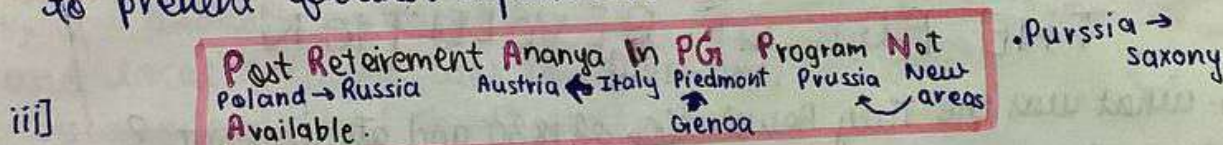 to prevent
Post Reteirement Ananya In PG Program Not
Poland → Russia Austria ← Italy Piedmont Prussia New areas
iii] Available. Genoa
.Purssia → Saxony